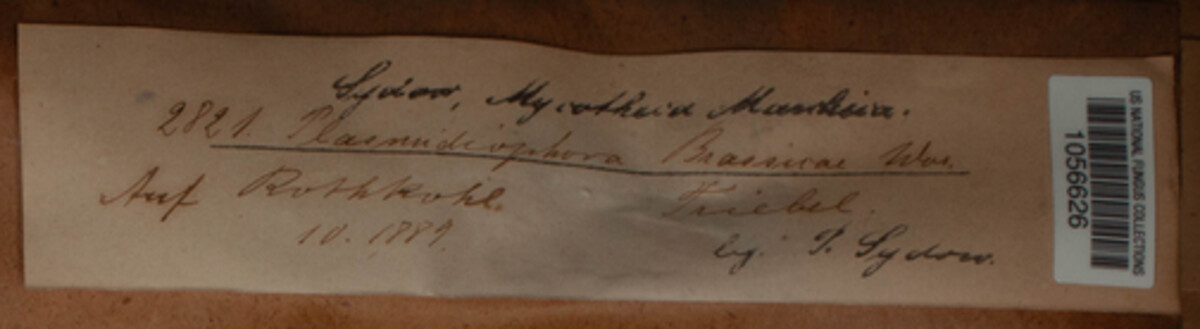 Sydow, Mycotheca Marchica.
2821. Plasmidiophora Brassicae Wor.
Auf Rothkohl. Triebel.
10. 1889. leg. P. Sydow.
US NATIONAL FUNGUS COLLECTIONS
1056626